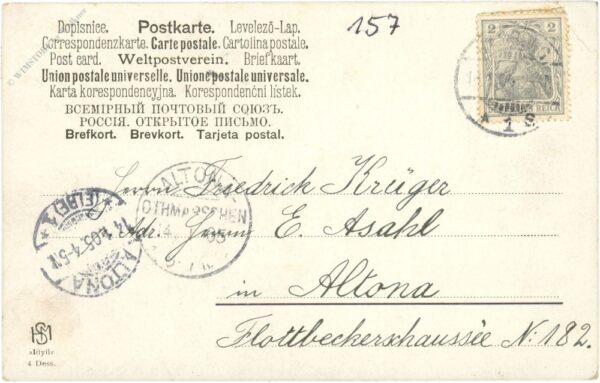 Dopisnice. Postkarte. Levelező-Lap.
Correspondenzkarte. Carte postale. Cartolina postale.
Post card. Weltpostverein. Briefkaart.
Union postale universelle. Union postale universale.
Karta korespondencyjna. Korespondenční lístek.
ВСЕМІРНЫЙ ПОЧТОВЫЙ СОЮЗЪ.
РОССІЯ. ОТКРЫТОЕ ПИСЬМО.
Brefkort. Brevkort. Tarjeta postal.
157
2 2
REICH
* 1 S
ALTONA
OTHMARSCHEN
ALTONA
(ELBE) 1
14.1.05. 4-5N
Herrn Friedrick Krüger
Adr. Herrn E. Asahl
in Altona
Flottbeckerschaussée N: 182.
HSM
»Idyll«
4 Dess.